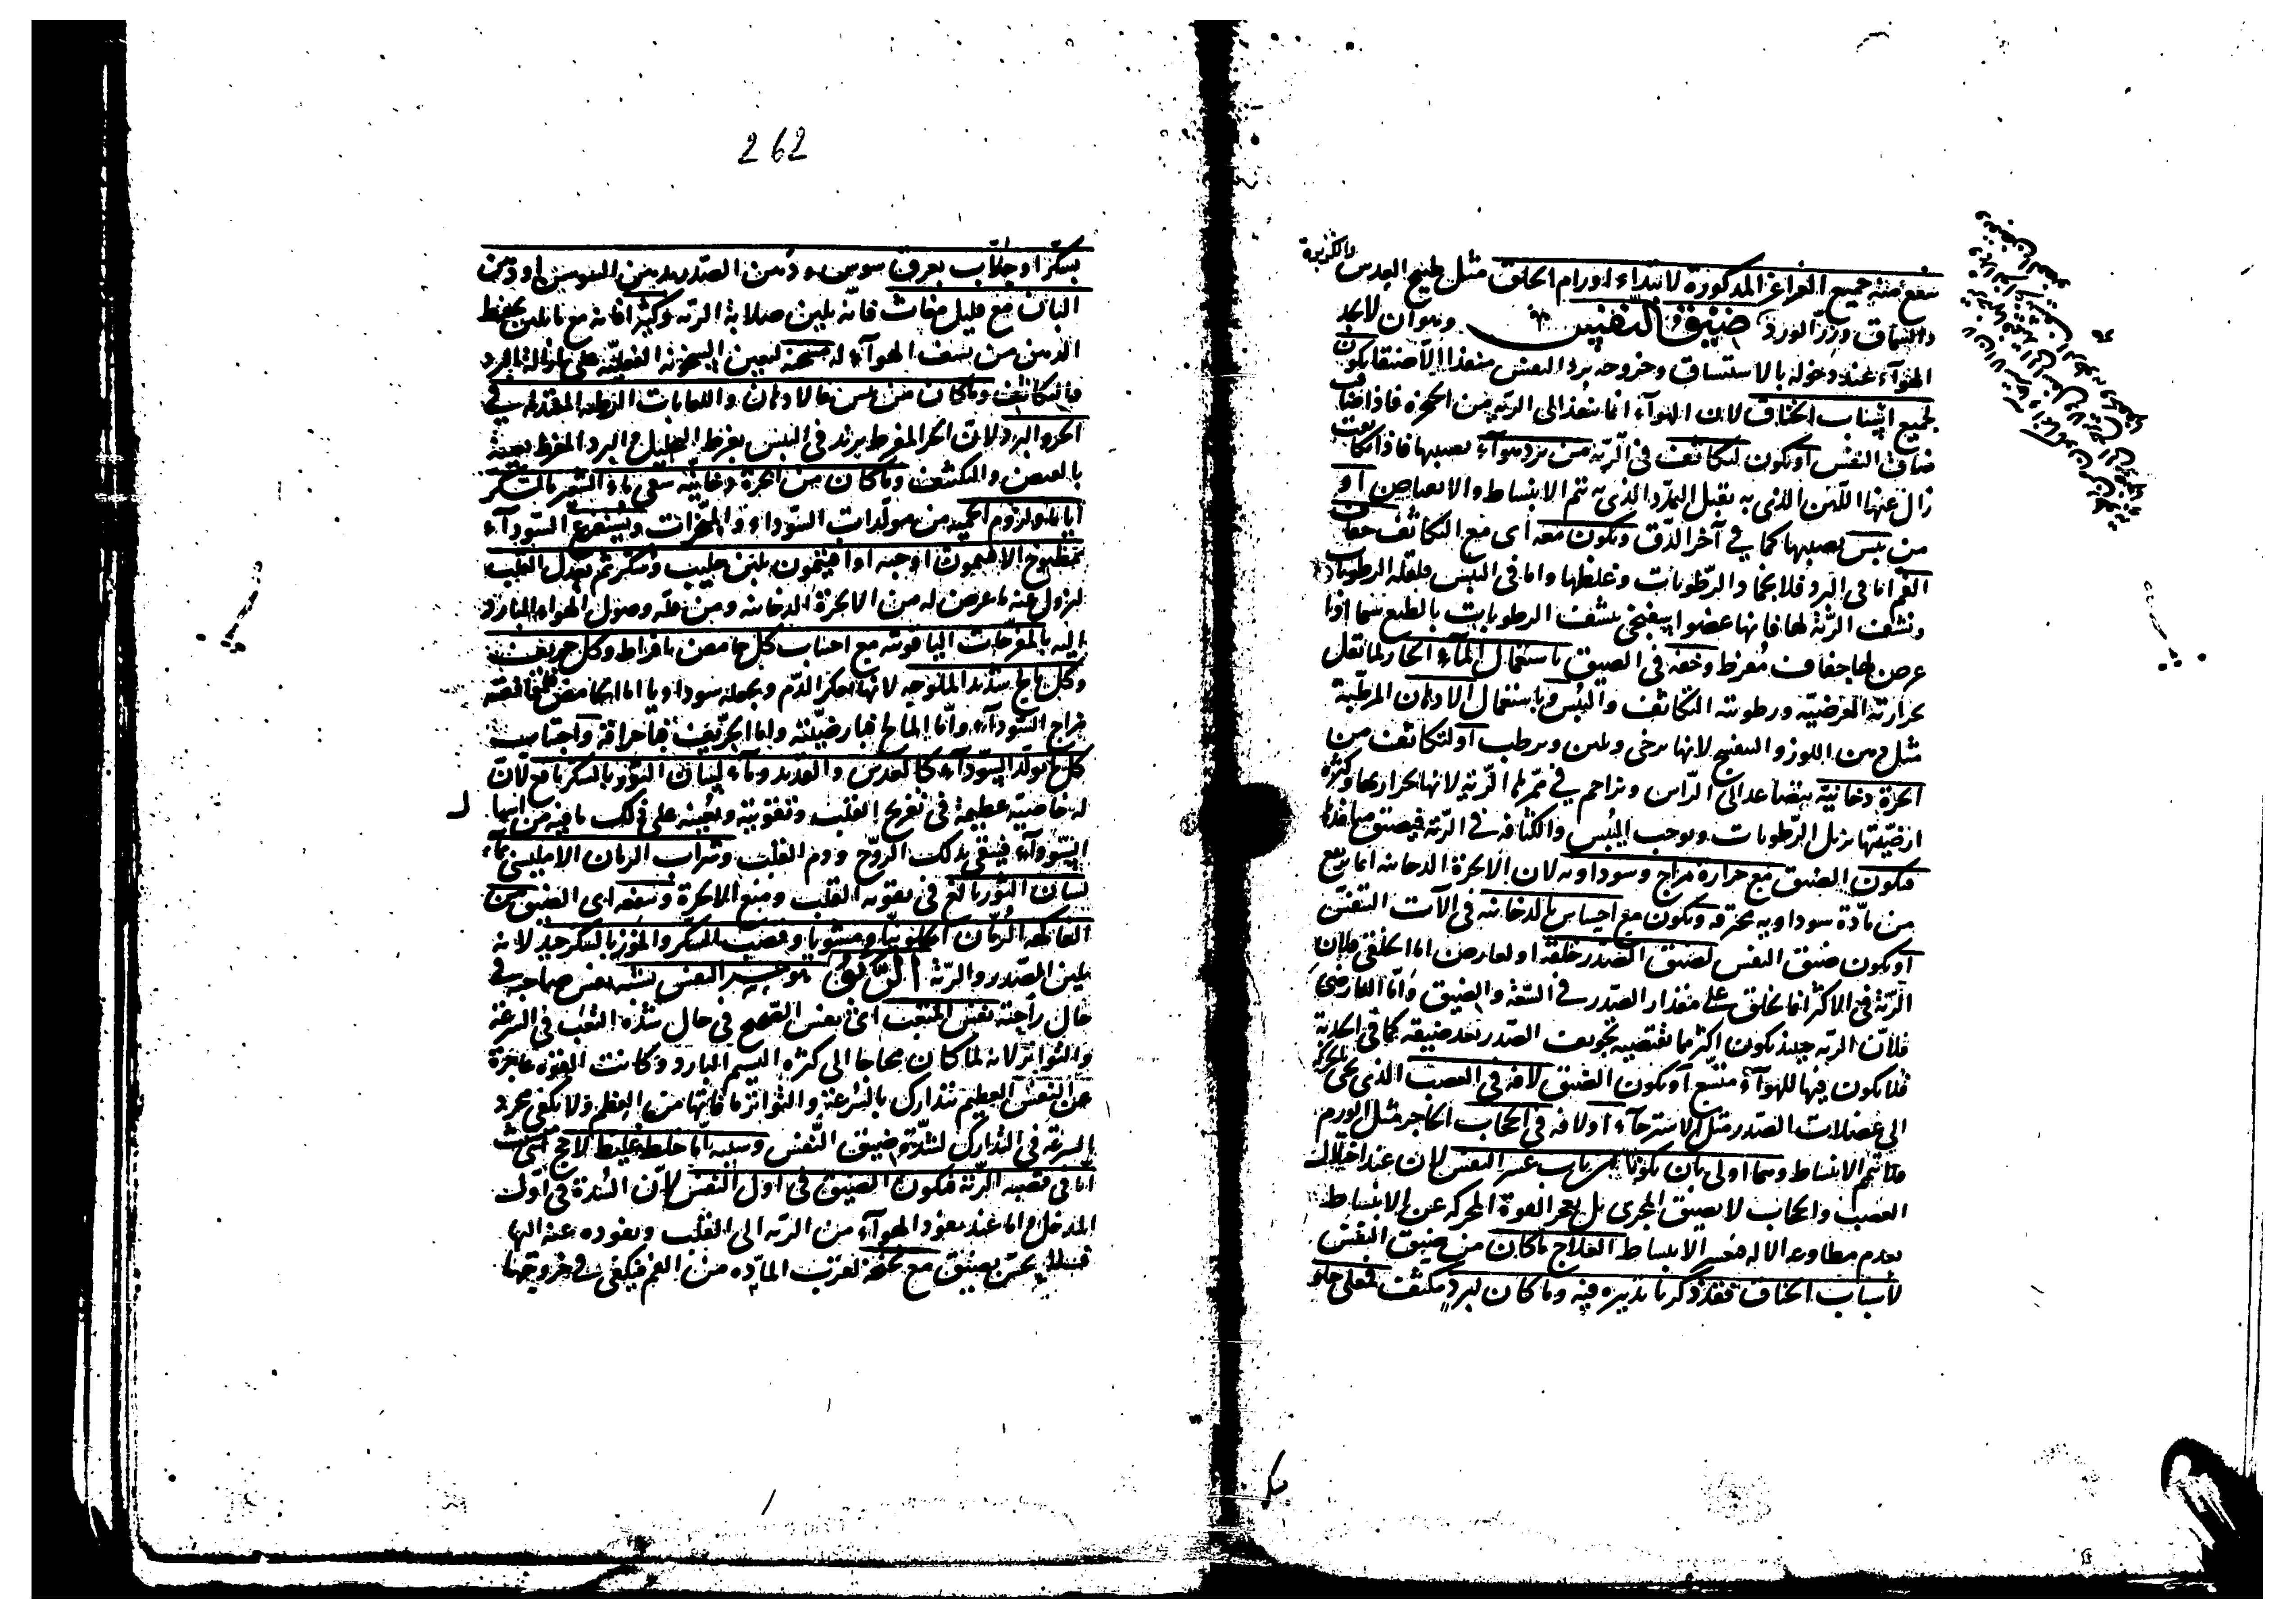 ينفع منه جميع الغراغر المذكورة لابتداء اورام الحلق مثل طبيخ العدس بالكزبرة
والسماق وزر الورد ضيق النفس وهو ان لا يجد
الهواء عند دخوله بالاستنشاق وخروجه برد النفس منفذا الا ضيقا يكون
لجميع اسباب الخناق لان الهواء انما ينفذ الى الرية من الحنجرة فاذا ضاقت
ضاق النفس او يكون لتكاثف فى الرية من برد هواء يصيبها فاذا تكاثفت
زال عنها اللين الذى به تقبل التمدد الذى به تتم الانبساط والانقباض او
من يبس يصيبها كما فى آخر الدق ويكون معه اى مع التكاثف جفاف
الفم اما فى البرد فلانجماد الرطوبات وغلظها واما فى اليبس فلقلة الرطوبات
ونشف الرئة لها فانها عضو اسفنجى ينشف الرطوبات بالطبع سيما اذا
عرض لها جفاف مفرط وخفة فى الضيق باستعمال الماء الحار لما تقل
بحرارته العرضية ورطوبته التكاثف واليبس وباستعمال الادهان المرطبة
مثل دهن اللوز والبنفسج لانها يرخى ويلين ويرطب او لتكاثف من
ابخرة دخانية يتصاعد الى الراس وتزاحم فى ممرها الرية لانها بحرارتها وكثرة
ارضيتها تزيل الرطوبات ويوجب اليبس والكثافة فى الرئة فيضيق منافذها
فيكون الضيق مع حرارة مزاج وسوداوية لان الابخرة الدخانية انما ترتفع
من مادة سوداوية محترقة ويكون مع احساس بالدخانية فى آلات التنفس
او يكون ضيق النفس لضيق الصدر خلقة او لعارض اما الخلقى فلان
الرئة فى الاكثر انما يخلق على مقدار الصدر فى السعة والضيق واما العارضى
فلان الرية حينئذ يكون اكثر ما يقتضيه تجويف الصدر بعد ضيقه كما فى الحدبة
فلا يكون فيها للهواء متسع او يكون الضيق لافة فى العصب الذى يجى لحركة
الى عضلات الصدر مثل الاسترخاء او لافة فى الحجاب الحاجز مثل الورم
فلا يتم الانبساط وهما اولى بان يكونا من باب عسر النفس لان عند اختلال
العصب والحجاب لا يضيق المجرى بل يعجز القوة المحركة عن الانبساط
لعدم مطاوعة الالة فيعسر الانبساط العلاج ما كان من ضيق النفس
لاسباب الخناق فقد ذكرنا تدبيره فيه وما كان لبرد مكثف فعلى حلو
262
بسكر او جلاب بعرق سوس ودهن الصدر بدهن السوسن او دهن
البان مع قليل مغاث فانه يلين صلابة الرية وكثيرا فانه مع تليين يحفظ
الدهن من نشف الهواء له سخنة ليعين السخونة الفعلية على ازالة البرد
والتكاثف وما كان من يبس فالادهان واللعابات الرطبة المعتدلة فى
الحر والبرد لان الحر المفرط يزيد فى اليبس بفرط التحليل والبرد المفرط يعينه
بالقبض والتكثيف وما كان من ابخرة دخانية سقى ماء الشعير بالسكر
اياما ولزوم الحمية من مولدات السوداء والمبخرات ويستفرغ السوداء
بمطبوخ الافتيمون او حبه او افتيمون بلبن حليب وسكر ثم يعدل القلب
ليزول عنه ما عرض له من الابخرة الدخانية ومن قلة وصول الهواء البارد
اليه بالمفرحات الياقوتية مع اجتناب كل حامض بافراط وكل حريف
وكل مالح شديد الملوحة لانها تعكر الدم وتجعله سوداويا اما الحامض
مزاج السوداء واما المالح فبارضيته واما الحريف فباحراقه واجتناب
كل ما يولد السوداء كالعدس والقديد وماء لسان الثور بالسكر نافع لان
له خاصية عظيمة فى تفريح القلب وتقويته ويعينه على ذلك ما فيه من اسهال
السوداء فينقى بذلك الروح ودم القلب وشراب الرمان الامليسى بماء
لسان الثور بالغ فى تقوية القلب ومنع الابخرة وينفعه اى الضيق من
الفاكهة الرمان الحلو نيا ومشويا وقصب السكر والموز بالسكر جيد لانه
يلين الصدر والرئة الربو هو عسر النفس يشبه نفس صاحبه فى
حال راحته نفس المتعب اى نفس الصحيح فى حال شدة التعب فى السرعة
والتواتر لانه لما كان محتاجا الى كثرة النسيم البارد وكانت القوة عاجزة
عن النفس العظيم تتدارك بالسرعة والتواتر ما فاتها من العظم ولا يكفى مجرد
السرعة فى التدارك لشدة ضيق النفس وسببه اما خلط غليظ لاحج
اما فى قصبة الرئة فيكون الضيق فى اول النفس لان السدة فى اول
المدخل واما عند نفوذ الهواء من الرية الى القلب ويعوده عنه اليها
يحس بضيق مع نحنحة لقرب المادة من الفم فيكفى فى خروجها